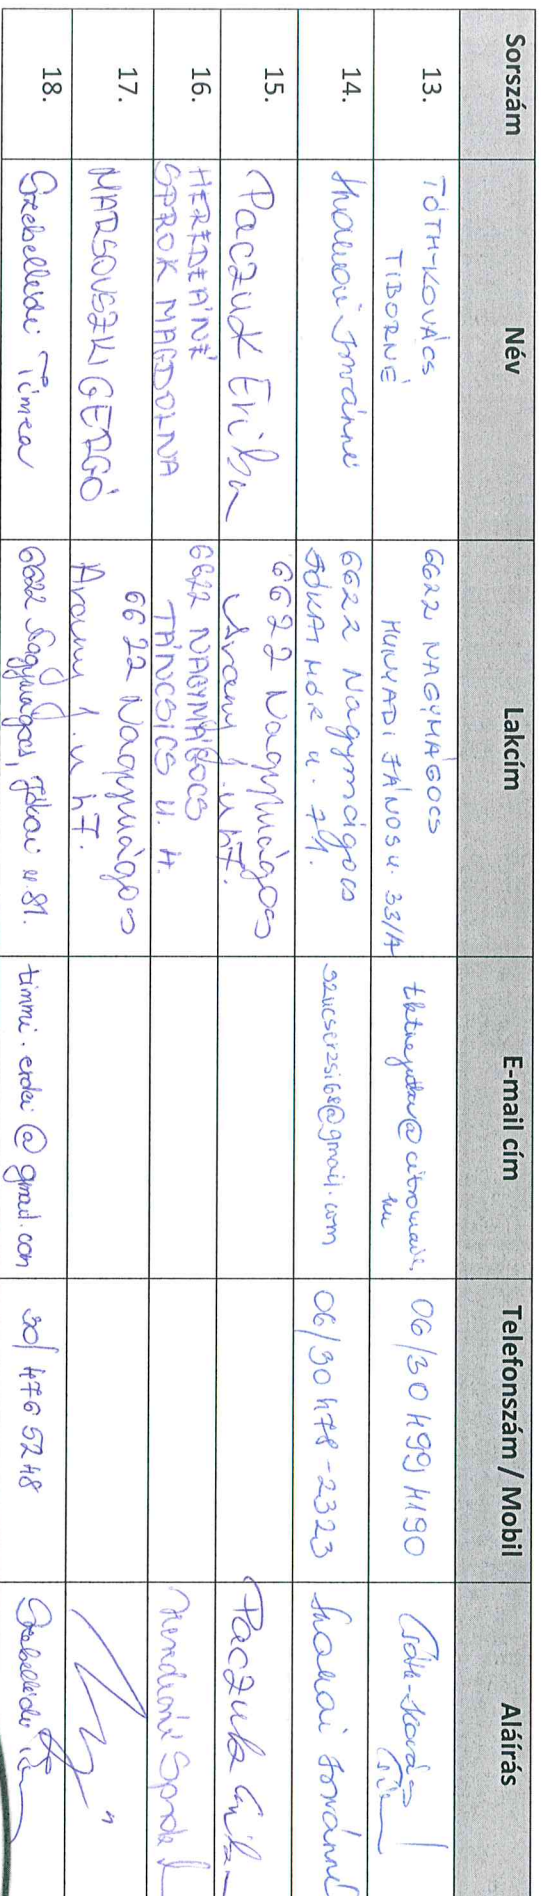 Sorszám Név Lakcím E-mail cím Telefonszám / Mobil Aláírás
13. TÓTH-KOVÁCS TIBORNÉ 6622 NAGYMÁGOCS HUNYADI JÁNOS u. 33/A 06/30 499 4190
14. Istvánné 6622 Nagymágocs JÓKAI MÓR u. 71. szucserzsi68@gmail.com 06/30 478-2323 Istvánné
15. Paczuk Erika 6622 Nagymágocs Arany J. u 47. Paczuk Erika
16. SPROK MAGDOLNA 6622 NAGYMÁGOCS TÁNCSICS u. 4.
17. MARSOVSZKI GERGŐ 6622 Nagymágocs Arany J. u 47.
18. Szebellédi Tímea 6622 Nagymágocs, Jókai u. 81. timmi.erdei@gmail.com 30/ 476 5248 Szebellédi